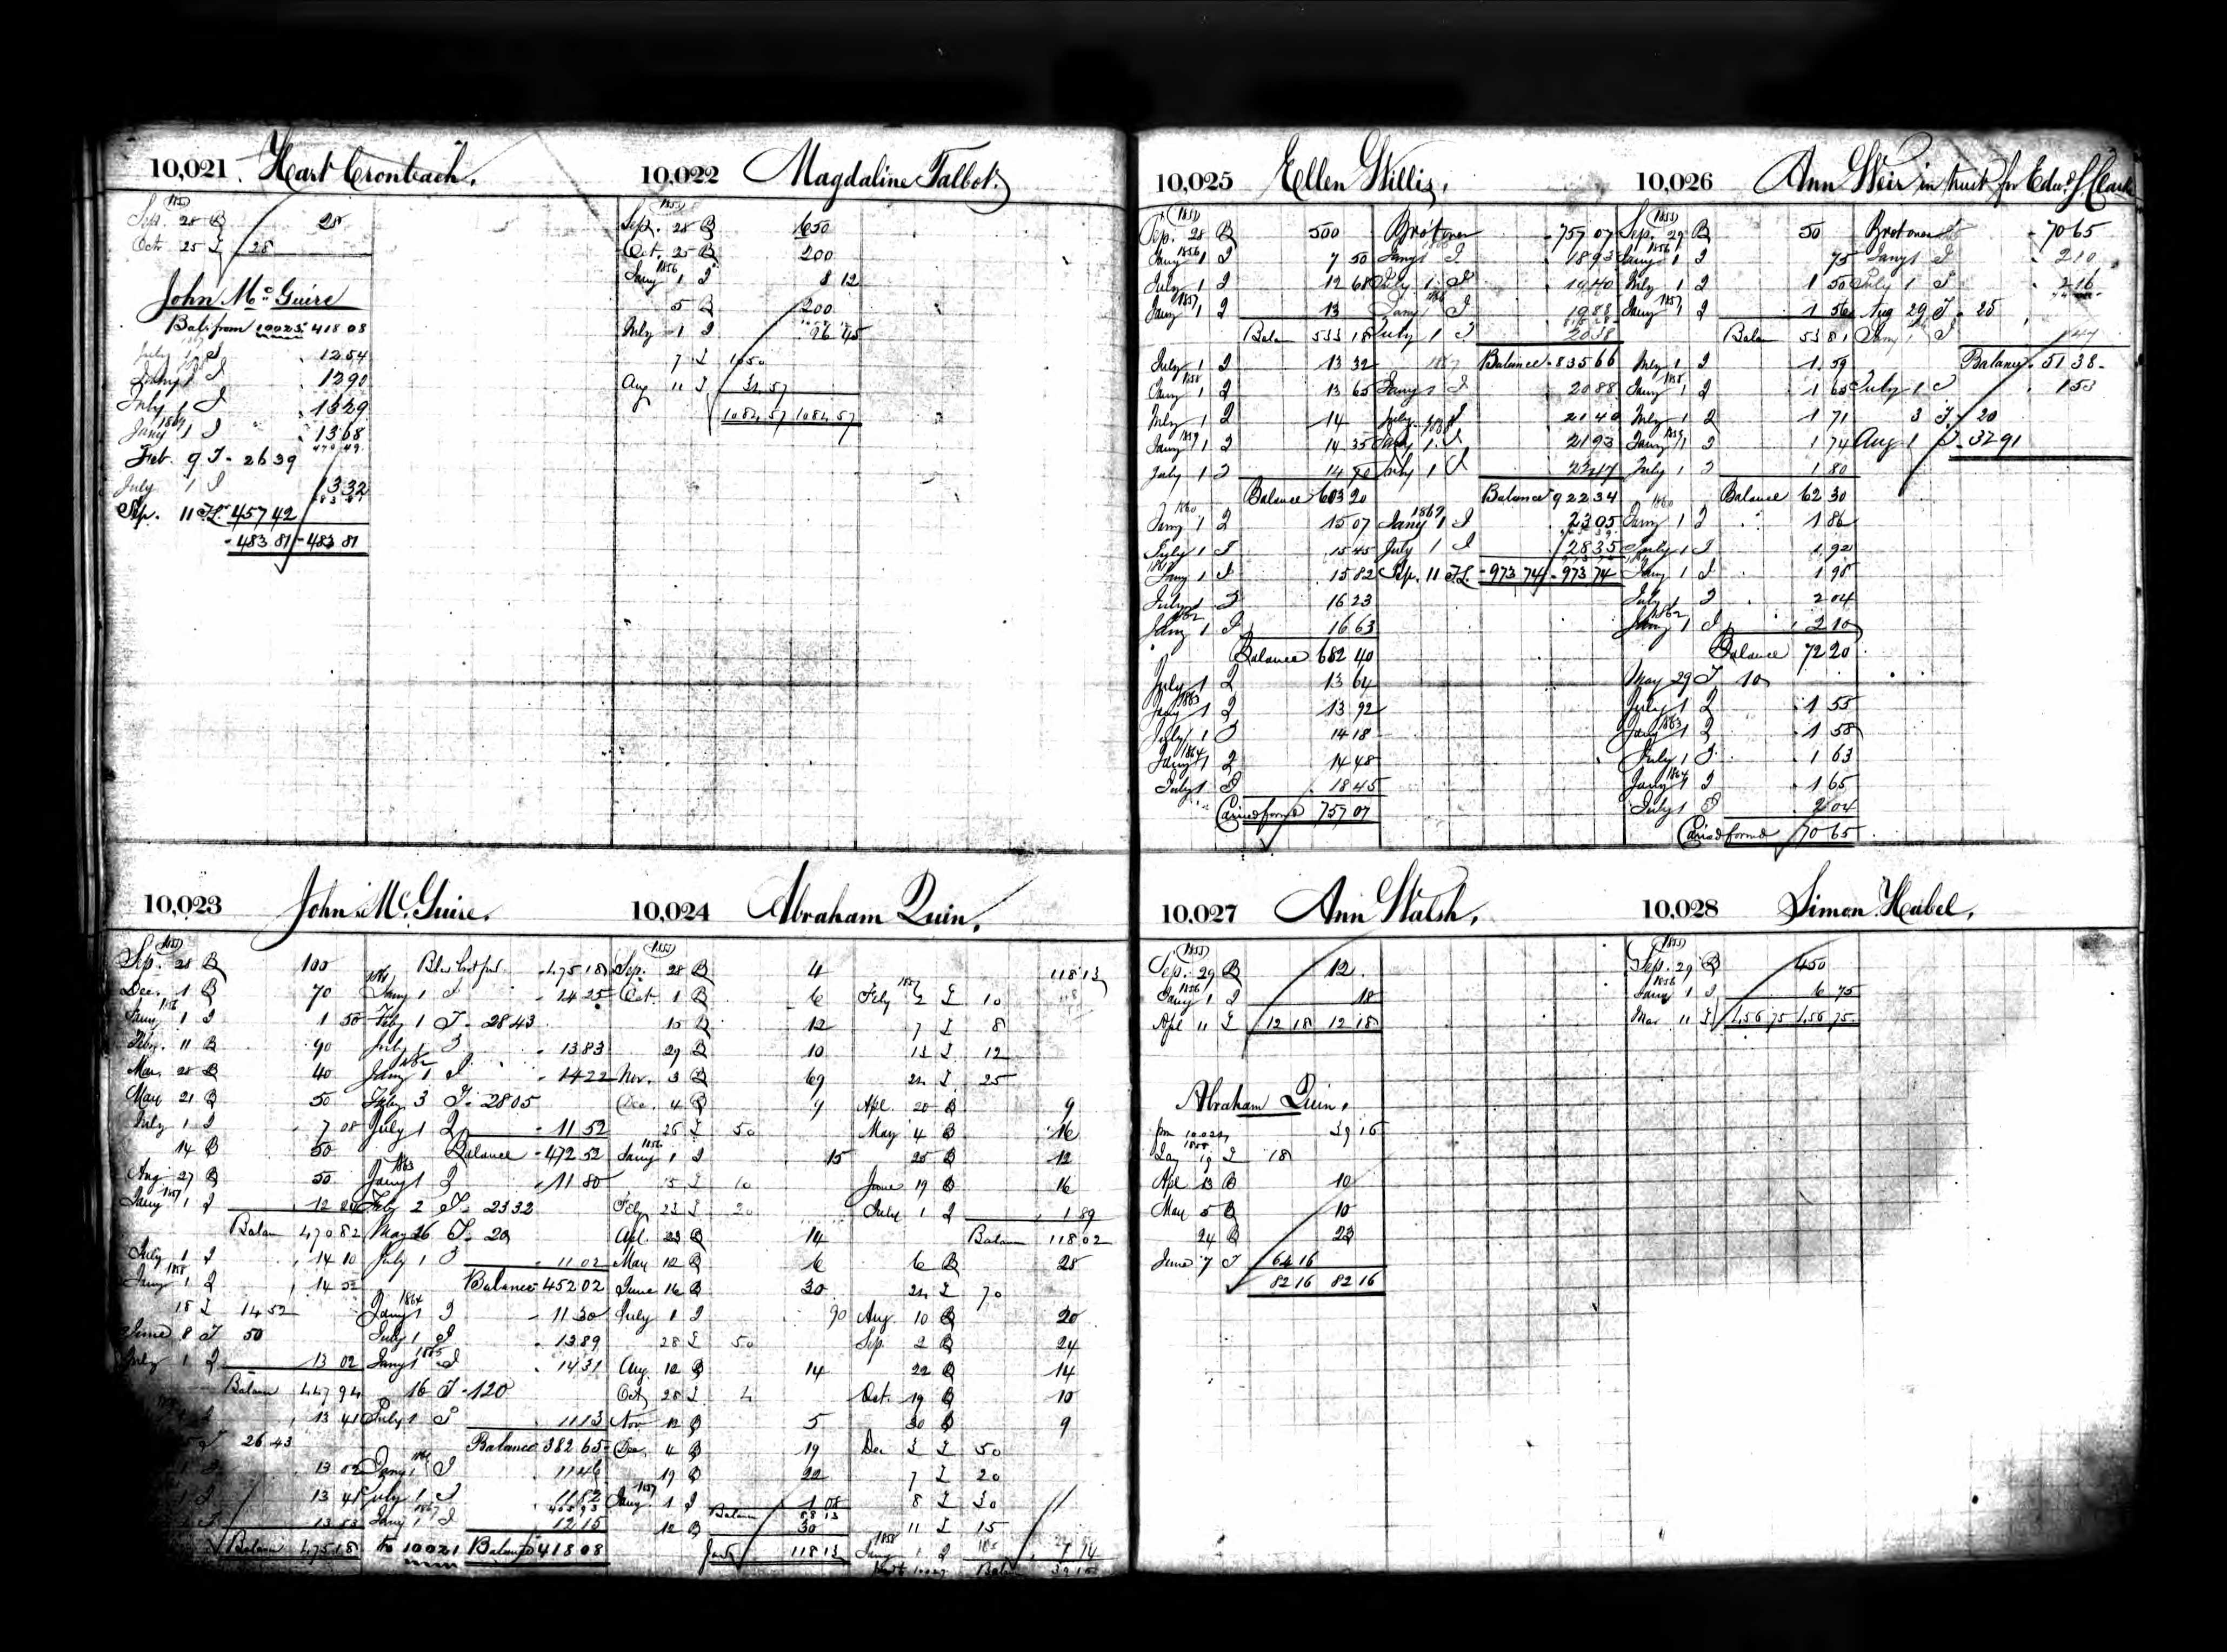 10,021. Hart Cronbach.
1855
Sep. 28 B 28
Oct. 25 I 28
John McGuire
Bal. from 10023 418 08
July 1 I 12 54
Jany 1 I 12 90
July 1 I 13 29
1869
Jany 1 I 13 68
Feb. 9 I - 26 39
July 1 I 13 32
Sep. 11 I. 457 42
- 483 81 - 483 81
10,022 Magdaline Talbot.
1855
Sep. 28 B 650
Oct. 25 B 200
1856
Jany 1 I 8 12
5 B 200
July 1 I 26 45
7 I 1050
Aug 11 I 34 57
1084 57 1084 57
10,023 John McGuire.
1855
Sep. 28 B 100
Dec. 1 B 70
1856
Jany 1 I 1 50
Feby. 11 B 90
Mar. 28 B 40
May 21 B 50
July 1 I 7 08
14 B 50
Aug 27 B 50
1857
Jany 1 I 12 24
Balan 470 82
July 1 I 14 10
1858
Jany 1 I 14 52
18 I 14 52
June 8 I 50
July 1 I 13 02
Balance 447 94
I 13 41
I 26 43
1 I 13 02
1 I 13 41
1 I 13 83
Balance 475 18
475 18
1861
Jany 1 I 14 25
Feby 1 I - 28 43
July 1 I 13 83
1862
Jany 1 I 14 22
Feby 3 I - 28 05
July 1 I 11 52
Balance - 472 52
1863
Jany 1 I 11 80
Feby 2 I - 23 32
May 26 I - 20
July 1 I 11 02
Balance - 452 02
1864
Jany 1 I 11 30
July 1 I 13 89
1865
Jany 1 I 14 31
16 I - 120
July 1 I 11 13
Balance 382 65
1866
Jany 1 I 11 46
July 1 I 11 82
1867
Jany 1 I 12 15
to 10021 Balance 418 08
10,024 Abraham Quin.
1855
Sep. 28 B 4
Oct. 1 B 6
15 B 12
29 B 10
Nov. 3 B 69
Dec. 4 B 4
26 I 50
1856
Jany 1 I 15
5 I 10
Feby 23 I 20
Apl. 23 B 14
May 12 B 6
June 16 B 30
July 1 I 90
28 I 50
Aug. 12 B 14
Oct 28 I 4
Nov 12 B 5
Dec. 4 B 19
19 B 22
1857
Jany. 1 I 1 08
Balan 88 13
12 B 30
118 13
118 13
1857
Feby 2 I 10
7 I 8
13 I 12
24 I 25
Apl. 20 B 9
May 4 B 16
25 B 12
June 19 B 16
July 1 I 1 89
Balan 118 02
6 B 28
24 I 70
Aug. 10 B 20
Sep. 2 B 24
22 B 14
Oct. 19 B 10
30 B 9
Dec 3 I 50
7 I 20
8 I 30
11 I 15
1858
Jany 1 I
Balan 39 16
10,025 Ellen Willis.
1855
Sep. 28 B 500
1856
Jany 1 I 7 50
July 1 I 12 68
1857
Jany 1 I 13
Balan 533 18
July 1 I 13 32
1858
Jany 1 I 13 65
July 1 I 14
1859
Jany 1 I 14 35
July 1 I 14 70
Balance 603 20
1860
Jany 1 I 15 07
July 1 I 15 45
Jany 1 I 15 82
July 1 I 16 23
1862
Jany 1 I 16 63
Balance 682 40
July 1 I 13 64
1863
Jany 1 I 13 92
July 1 I 14 18
1864
Jany 1 I 14 48
July 1 I 18 45
Carried forwd 757 07
Brot over - 757 07
Jany 1 I 18 93
July 1 I 19 40
1866
Jany 1 I 19 88
July 1 I 20 38
1867 Balance - 835 66
Jany 1 I 20 88
July 1 I 21 40
Jany 1 I 21 93
July 1 I 22 47
Balance 922 34
1869
Jany 1 I 23 05
July 1 I 28 35
Sep. 11 I. - 973 74 - 973 74
10,026 Ann Weir in trust for Edwd. J. Clark
1855
Sep. 29 B 50
1856
Jany 1 I 75
July 1 I 1 50
1857
Jany 1 I 1 56
Balan 53 81
July 1 I 1 59
1858
Jany 1 I 1 65
July 1 I 1 71
1859
Jany 1 I 1 74
July 1 I 1 80
Balance 62 30
1860
Jany 1 I 1 86
July 1 I 1 92
1861
Jany 1 I 1 98
July 1 I 2 04
1862
Jany 1 I 2 10
Balance 72 20
May 29 I 10
July 1 I 1 55
1863
Jany 1 I 1 58
July 1 I 1 63
1864
Jany 1 I 1 65
July 1 I 2 04
Carried forwd 70 65
Brot over - 70 65
Jany 1 I 2 10
July 1 I 2 16
Aug 29 I - 25
Jany 1 I 1 47
Balance - 51 38
July 1 I 1 53
3 I 20
Aug 1 I - 32 91
10,027 Ann Walsh.
1855
Sep. 29 B 12
1856
Jany 1 I 18
Apl 11 I 12 18 12 18
Abraham Quin.
from 10024 39 16
1858
Jany 19 I 18
Apl 13 B 10
May 5 B 10
24 B 23
June 7 I 64 16
82 16 82 16
10,028 Simon Habel.
1855
Sep. 29 B 450
1856
Jany 1 I 6 75
Mar 11 I 456 75 456 75